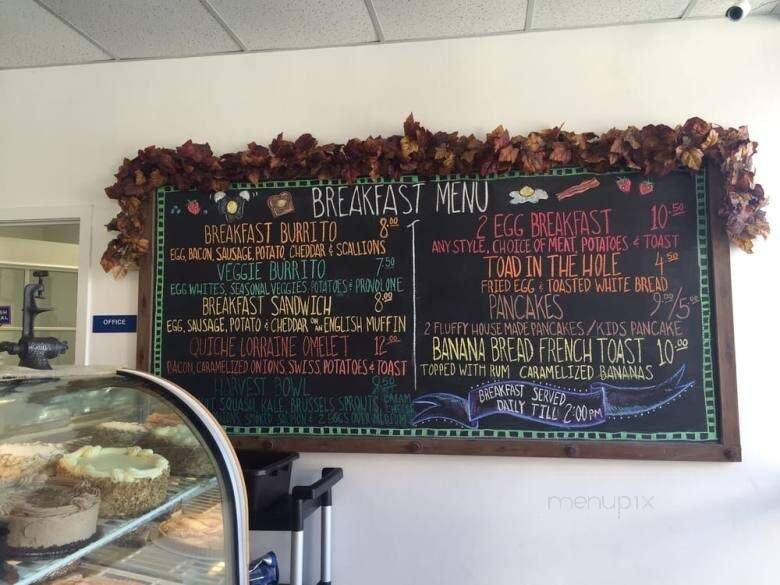 BREAKFAST MENU
BREAKFAST BURRITO 8.00
EGG, BACON, SAUSAGE, POTATO, CHEDDAR & SCALLIONS
VEGGIE BURRITO 7.50
EGG WHITES, SEASONAL VEGGIES, POTATOES & PROVOLONE
BREAKFAST SANDWICH 8.00
EGG, SAUSAGE, POTATO & CHEDDAR ON AN ENGLISH MUFFIN
QUICHE LORRAINE OMELET 12.00
BACON, CARAMELIZED ONIONS, SWISS, POTATOES & TOAST
HARVEST BOWL 9.50
SQUASH, KALE, BRUSSELS SPROUTS,
2 EGG BREAKFAST 10.50
ANY STYLE, CHOICE OF MEAT, POTATOES & TOAST
TOAD IN THE HOLE 4.50
FRIED EGG & TOASTED WHITE BREAD
PANCAKES
2 FLUFFY HOUSE MADE PANCAKES / KIDS PANCAKE
BANANA BREAD FRENCH TOAST 10.00
TOPPED WITH RUM CARAMELIZED BANANAS
BREAKFAST SERVED
DAILY TILL 2:00 PM
OFFICE
menupix